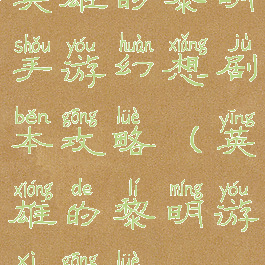 英雄的黎明
shǒu yóu huàn xiǎng jù
手游幻想剧
běn gōng lüè yīng
本攻略（英
xióng de lí míng yóu
雄的黎明游
xì gōng lüè